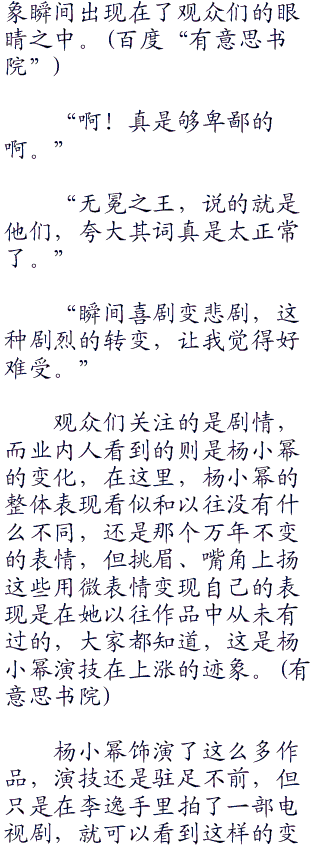 象瞬间出现在了观众们的眼
睛之中。(百度“有意思书
院”)
“啊！真是够卑鄙的
啊。”
“无冕之王，说的就是
他们，夸大其词真是太正常
了。”
“瞬间喜剧变悲剧，这
种剧烈的转变，让我觉得好
难受。”
观众们关注的是剧情，
而业内人看到的则是杨小幂
的变化，在这里，杨小幂的
整体表现看似和以往没有什
么不同，还是那个万年不变
的表情，但挑眉、嘴角上扬
这些用微表情变现自己的表
现是在她以往作品中从未有
过的，大家都知道，这是杨
小幂演技在上涨的迹象。(有
意思书院)
杨小幂饰演了这么多作
品，演技还是驻足不前，但
只是在李逸手里拍了一部电
视剧，就可以看到这样的变